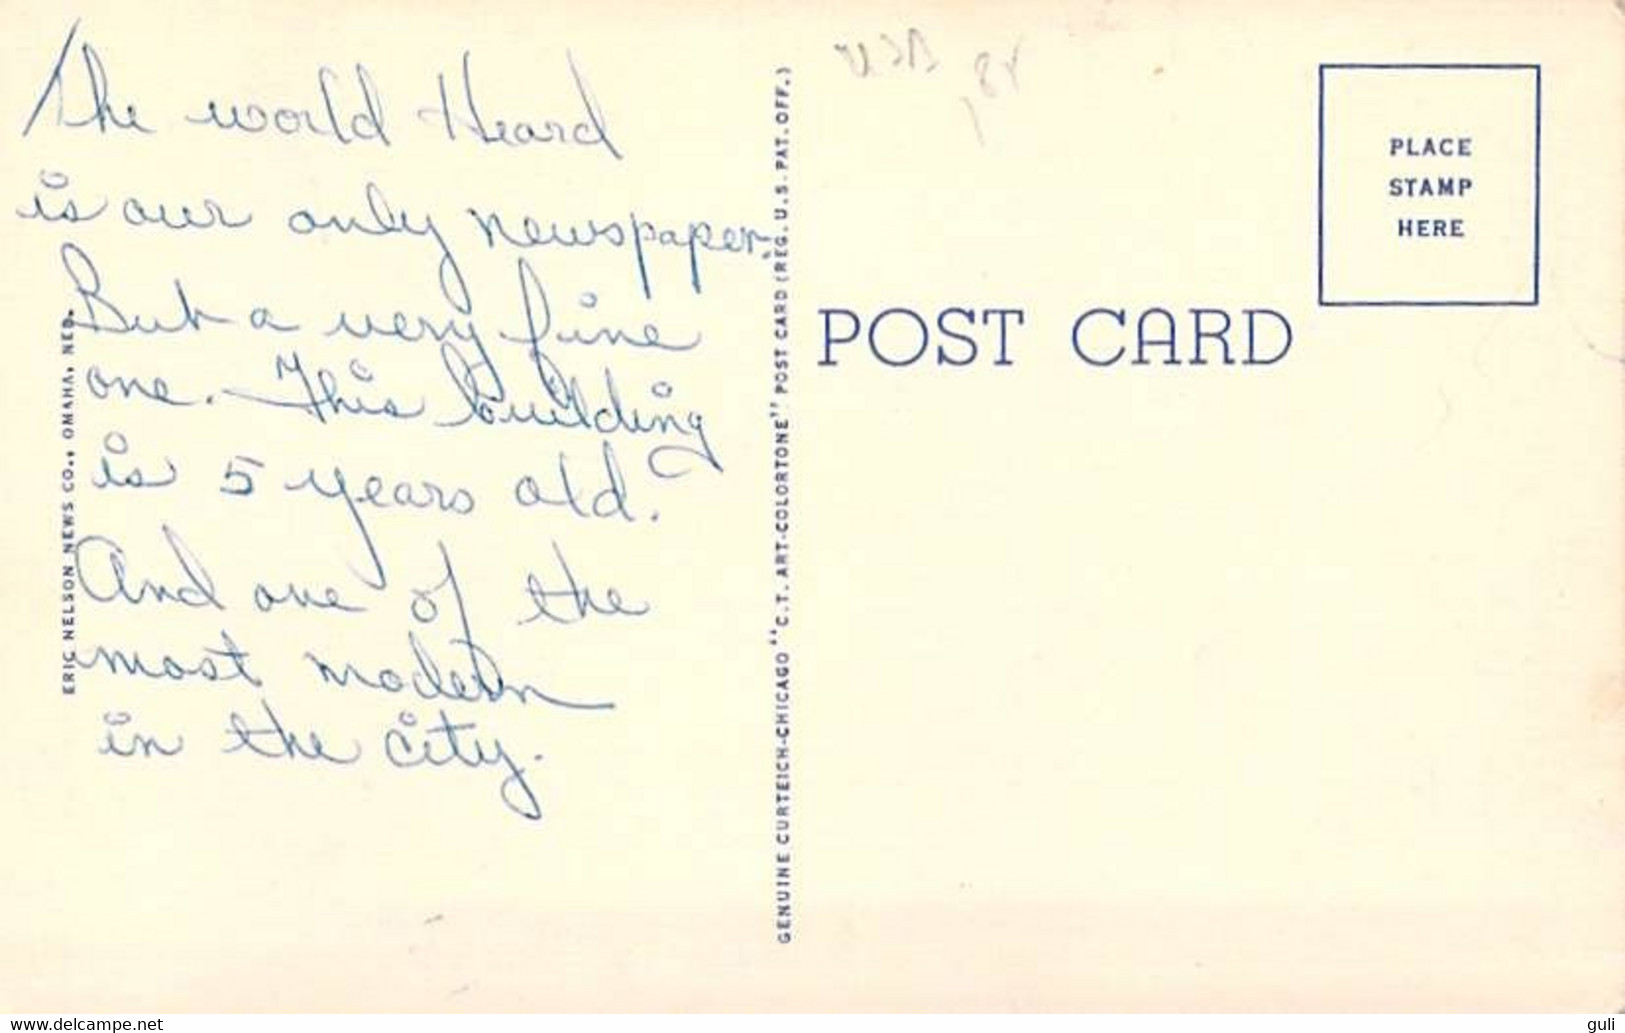 The world Heard
is our only newspaper.
But a very fine
one. This building
is 5 years old.
And one of the
most modern
in the city.
ERIC NELSON NEWS CO., OMAHA, NEB.
GENUINE CURTEICH-CHICAGO "C.T. ART-COLORTONE" POST CARD (REG. U.S. PAT. OFF.)
POST CARD
PLACE
STAMP
HERE
www.delcampe.net
guli